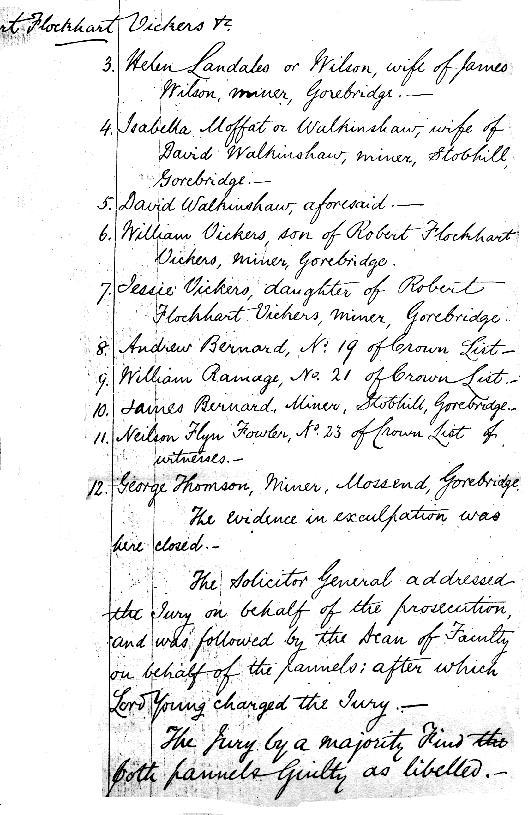 rt Flockhart Vickers &c.
3. Helen Landales or Wilson, wife of James
Wilson, miner, Gorebridge.—
4. Isabella Moffat or Walkinshaw, wife of
David Walkinshaw, miner, Stobhill,
Gorebridge.—
5. David Walkinshaw, aforesaid.—
6. William Vickers, son of Robert Flockhart
Vickers, miner, Gorebridge.
7. Jessie Vickers, daughter of Robert
Flockhart Vickers, miner, Gorebridge.
8. Andrew Bernard, No. 19 of Crown List—
9. William Ramage, No. 21 of Crown List.—
10. James Bernard, Miner, Stobhill, Gorebridge.—
11. Neilson Flyn Fowler, No. 23 of Crown List of
witnesses.—
12. George Thomson, Miner, Mossend, Gorebridge.
The evidence in exculpation was
here closed.—
The Solicitor General addressed
the Jury on behalf of the prosecution,
and was followed by the Dean of Faculty
on behalf of the pannels: after which
Lord Young charged the Jury.—
The Jury by a majority Find the
both pannels Guilty as libelled.—